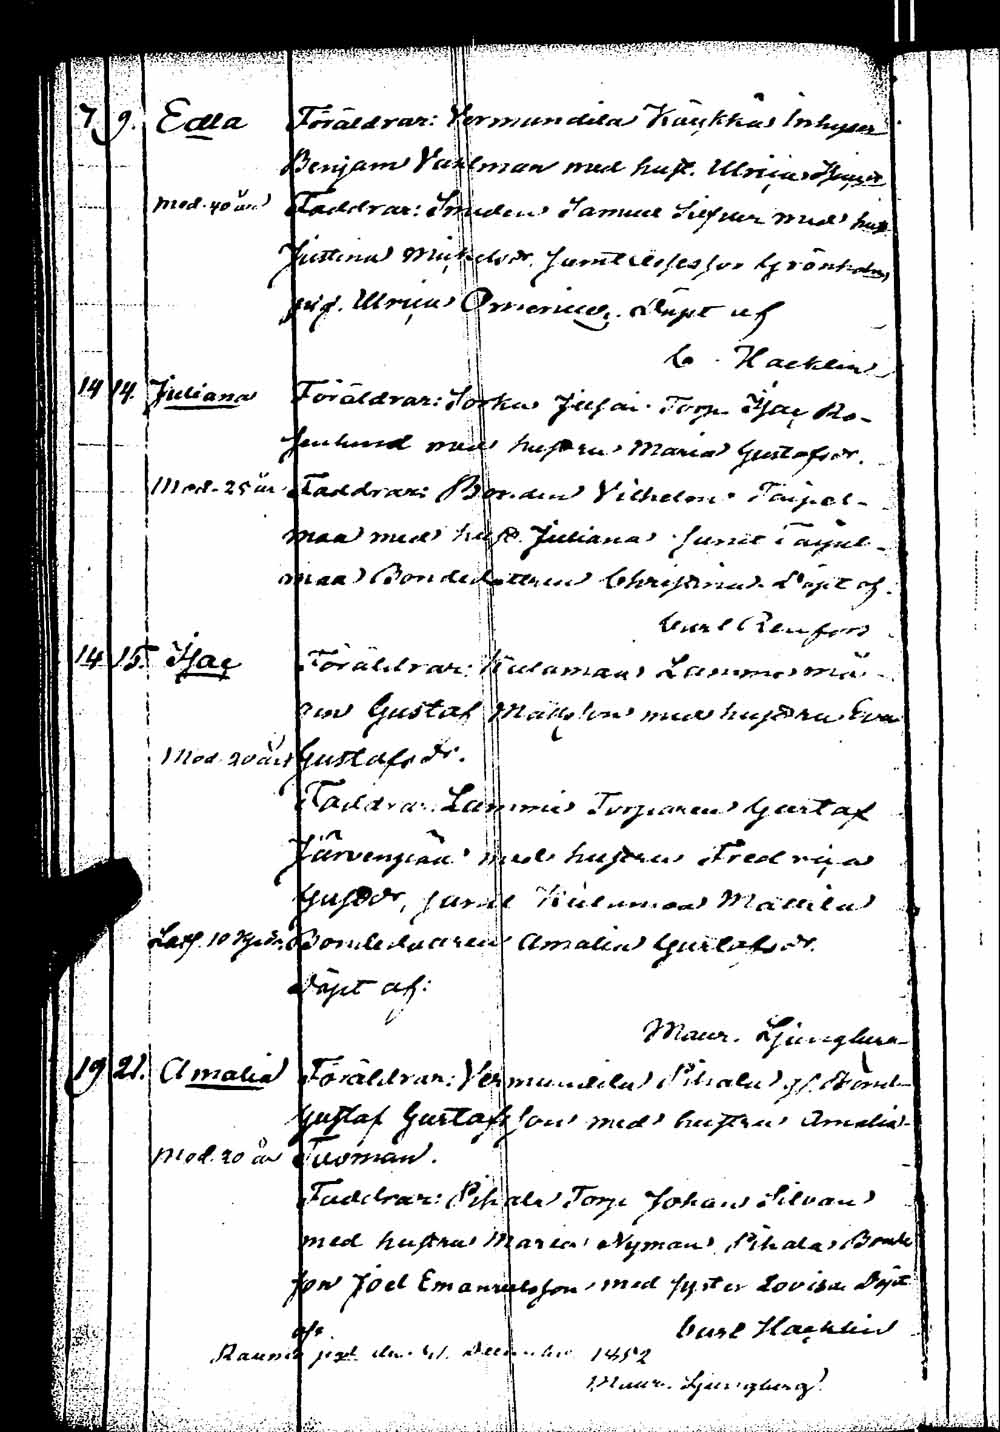 7 9. Edla Föräldrar: Vermundila Käykkä Inhyses
Benjam Vahlman med hust. Ulrica
Mod. 40 år Faddrar: Smeden Samuel med hust
Justina Michelsdr. samt Grönholm
pig. Ulrica Döpt af
C. Hacklin
14 14. Juliana Föräldrar: Sorka Torp. Isac Ro-
senlund med hustru Maria Gustafsdr.
Mod. 25 år Faddrar: Bonden Vilhelm Taipal-
maa med hust. Juliana samt Taipal-
maa Bondedottren Christina. Döpt af
Carl Renfors
14 15. Isac Föräldrar: Kulamaa Lammi
Gustaf Mattsson med hustru Eva
Mod. 20 år Gustafsdr.
Faddrar: Lammi Torparen Gustaf
Järvenpää med hustru Fredrica
Gustdr, samt Kulamaa Mattila
Bondedottren Amalia Gustafsdr.
Döpt af:
Maur. Ljungberg
19 21. Amalia Föräldrar: Vermundila Pihala Bond
Gustaf Gustafsson med hustru Amalia
Mod. 20 år Tuoman.
Faddrar: Pihala Torp Johan Silvan
med hustru Maria Nyman, Pihala Bonde
son Joel Emanuelsson med syster Lovisa Döpt
af: Carl Hacklin
Raumo den 31 December 1852
Maur. Ljungberg